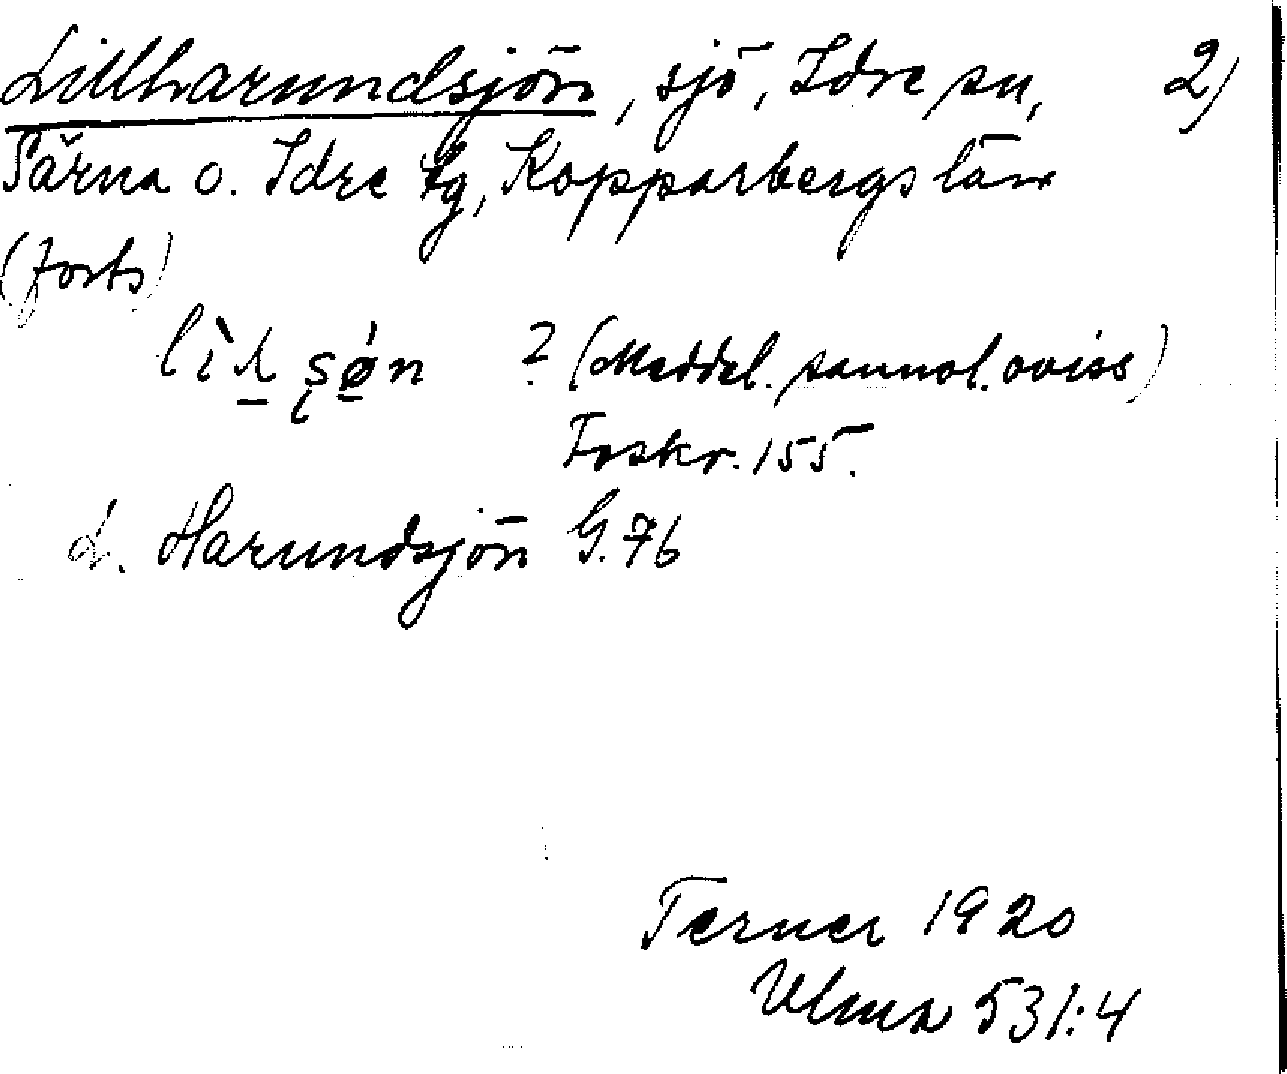 Lillharundsjön, sjö, Idre sn, 2)
Särna o. Idre tg, Kopparbergs län
(forts)
? (Meddel. sannol. oviss)
Frskr. 155.
L. Harundsjön G. 76
Terner 1920
Ulma 531:4